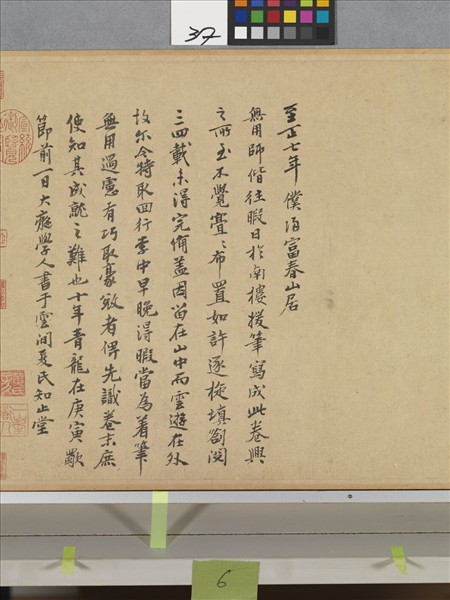 37
至正七年僕歸富春山居
無用師偕往暇日於南樓援筆寫成此卷興
之所至不覺亹〻布置如許逐旋填劄閱
三四載未得完備盖因留在山中而雲遊在外
故尓今特取回行李中早晚得暇當為着筆
無用過慮有巧取豪敓者俾先識卷末庶
使知其成就之難也十年青龍在庚寅歜
節前一日大癡學人書于雲間夏氏知止堂
6